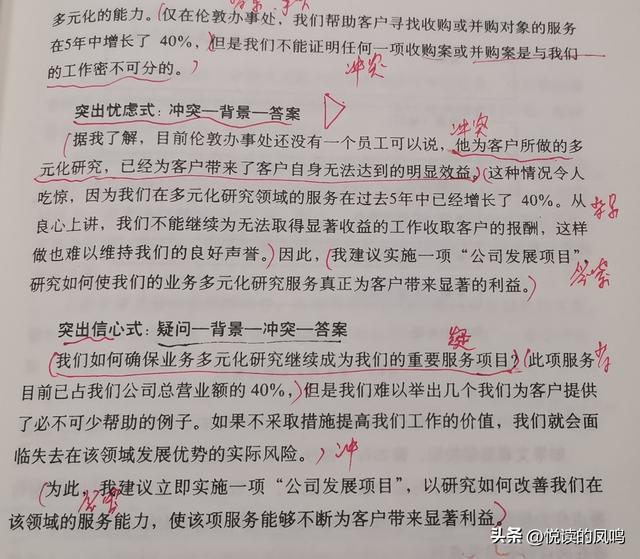 多元化的能力。(仅在伦敦办事处，我们帮助客户寻找收购或并购对象的服务
在5年中增长了 40%，但是我们不能证明任何一项收购案或并购案是与我们
的工作密不可分的。)
冲突
突出忧虑式：冲突—背景—答案
冲突
(据我了解，目前伦敦办事处还没有一个员工可以说，他为客户所做的多
元化研究，已经为客户带来了客户自身无法达到的明显效益。(这种情况令人
吃惊，因为我们在多元化研究领域的服务在过去5年中已经增长了 40%。从
背景
良心上讲，我们不能继续为无法取得显著收益的工作收取客户的报酬，这样
做也难以维持我们的良好声誉。)因此，(我建议实施一项“公司发展项目”，
研究如何使我们的业务多元化研究服务真正为客户带来显著的利益。)
答案
突出信心式：疑问—背景—冲突—答案
疑
(我们如何确保业务多元化研究继续成为我们的重要服务项目？(此项服务
目前已占我们公司总营业额的 40%，)但是我们难以举出几个我们为客户提供
了必不可少帮助的例子。如果不采取措施提高我们工作的价值，我们就会面
临失去在该领域发展优势的实际风险。)
冲
(为此，我建议立即实施一项“公司发展项目”，以研究如何改善我们在
答案
该领域的服务能力，使该项服务能够不断为客户带来显著利益。
头条 @悦读的凤鸣